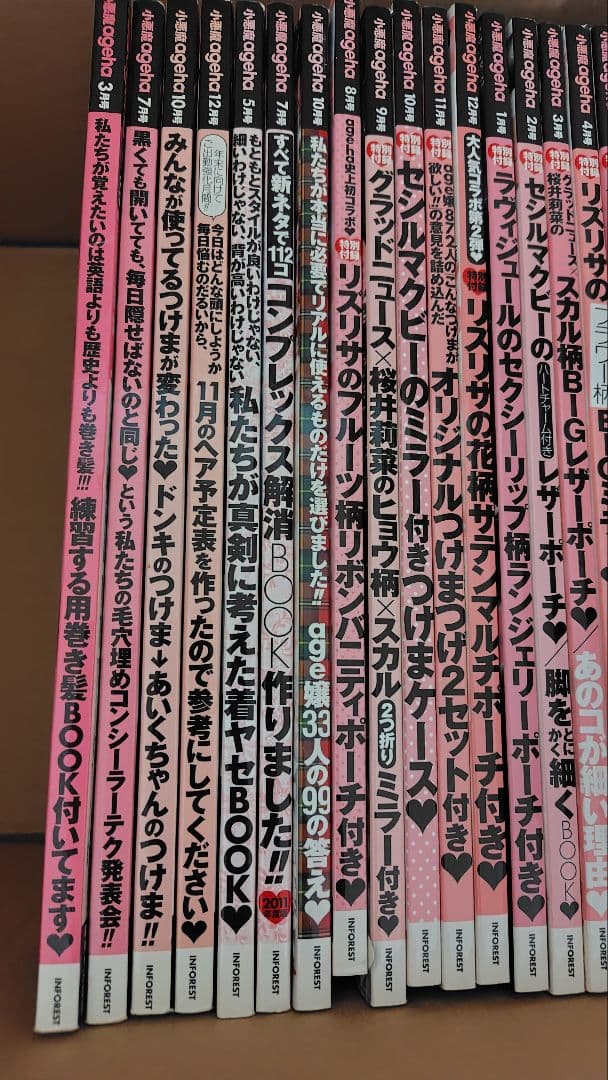 小悪魔ageha 3月号
私たちが覚えたいのは英語よりも歴史よりも巻き髪!!!
練習する用巻き髪BOOK付いてます♥
INFOREST
小悪魔ageha 7月号
黒くても開いてても、毎日隠せばないのと同じ♥という私たちの毛穴埋めコンシーラーテク発表会!!
INFOREST
小悪魔ageha 10月号
みんなが使ってるつけまが変わった♥ドンキのつけま→あいくちゃんのつけま!!
INFOREST
小悪魔ageha 12月号
年末に向けて
ご出勤強化月間!!
今日はどんな頭にしようか
毎日悩むのだるいから、
11月のヘア予定表を作ったので参考にしてください♥
INFOREST
小悪魔ageha 5月号
もともとスタイルが良いわけじゃない、
細いわけじゃない、背が高いわけじゃない
私たちが真剣に考えた着ヤセBOOK♥
INFOREST
小悪魔ageha 7月号
すべて新ネタで112コ
コンプレックス解消BOOK作りました!!
2011年度版
INFOREST
小悪魔ageha 10月号
私たちが本当に必要でリアルに使えるものだけを選びました!!
age嬢33人の99の答え♥
INFOREST
小悪魔ageha 8月号
ageha史上初コラボ♥
特別付録
リズリサのフルーツ柄リボンバニティポーチ付き♥
INFOREST
小悪魔ageha 9月号
特別付録
グラッドニュース×桜井莉菜のヒョウ柄×スカル2つ折りミラー付き♥
INFOREST
小悪魔ageha 10月号
特別付録
セシルマクビーのミラー付きつけまケース♥
INFOREST
小悪魔ageha 11月号
特別付録
age嬢872人の「こんなつけまが
欲しい!!」の意見を詰め込んだ
オリジナルつけまつげ2セット付き♥
INFOREST
小悪魔ageha 12月号
大人気コラボ第2弾♥
特別付録
リズリサの花柄サテンマルチポーチ付き♥
INFOREST
小悪魔ageha 1月号
特別付録
ラヴィジュールのセクシーリップ柄ランジェリーポーチ付き♥
INFOREST
小悪魔ageha 2月号
特別付録
セシルマクビーのハートチャーム付きレザーポーチ♥/脚をとにかく細くBOOK♥
INFOREST
小悪魔ageha 3月号
特別付録
グラッドニュース×
桜井莉菜の
スカル柄BIGレザーポーチ♥/あのコが細い理由
INFOREST
小悪魔ageha 4月号
特別付録
リズリサの